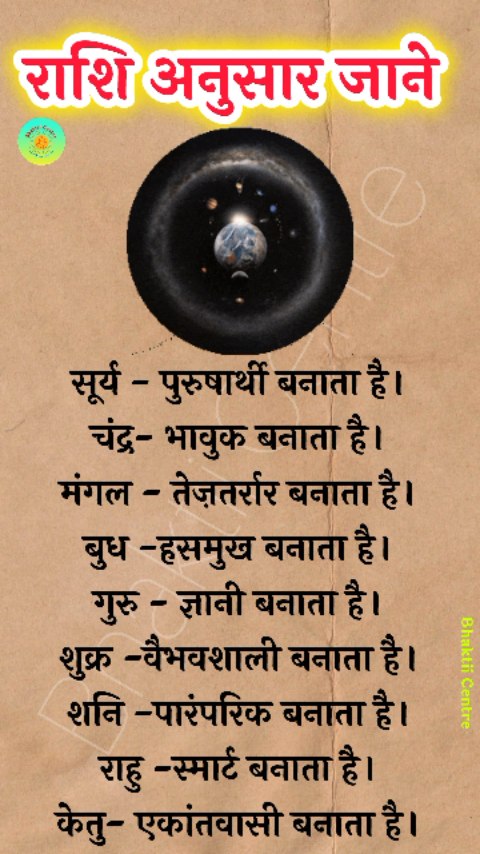 राशि अनुसार जाने
सूर्य - पुरुषार्थी बनाता है।
चंद्र- भावुक बनाता है।
मंगल - तेज़तर्रार बनाता है।
बुध -हसमुख बनाता है।
गुरु - ज्ञानी बनाता है।
शुक्र -वैभवशाली बनाता है।
शनि -पारंपरिक बनाता है।
राहु -स्मार्ट बनाता है।
केतु- एकांतवासी बनाता है।
Bhaktii Centre